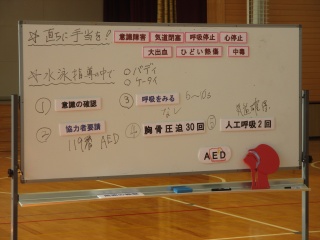 ※直ちに手当を!!
意識障害 気道閉塞 呼吸停止 心停止
大出血 ひどい熱傷 中毒
※水泳指導の中で
○バディ
○ケータイ
① 意識の確認
③ 呼吸をみる 6〜10s
なし
気道確保
② 協力者要請
119番 AED
④ 胸骨圧迫30回
⑤ 人工呼吸2回
AED